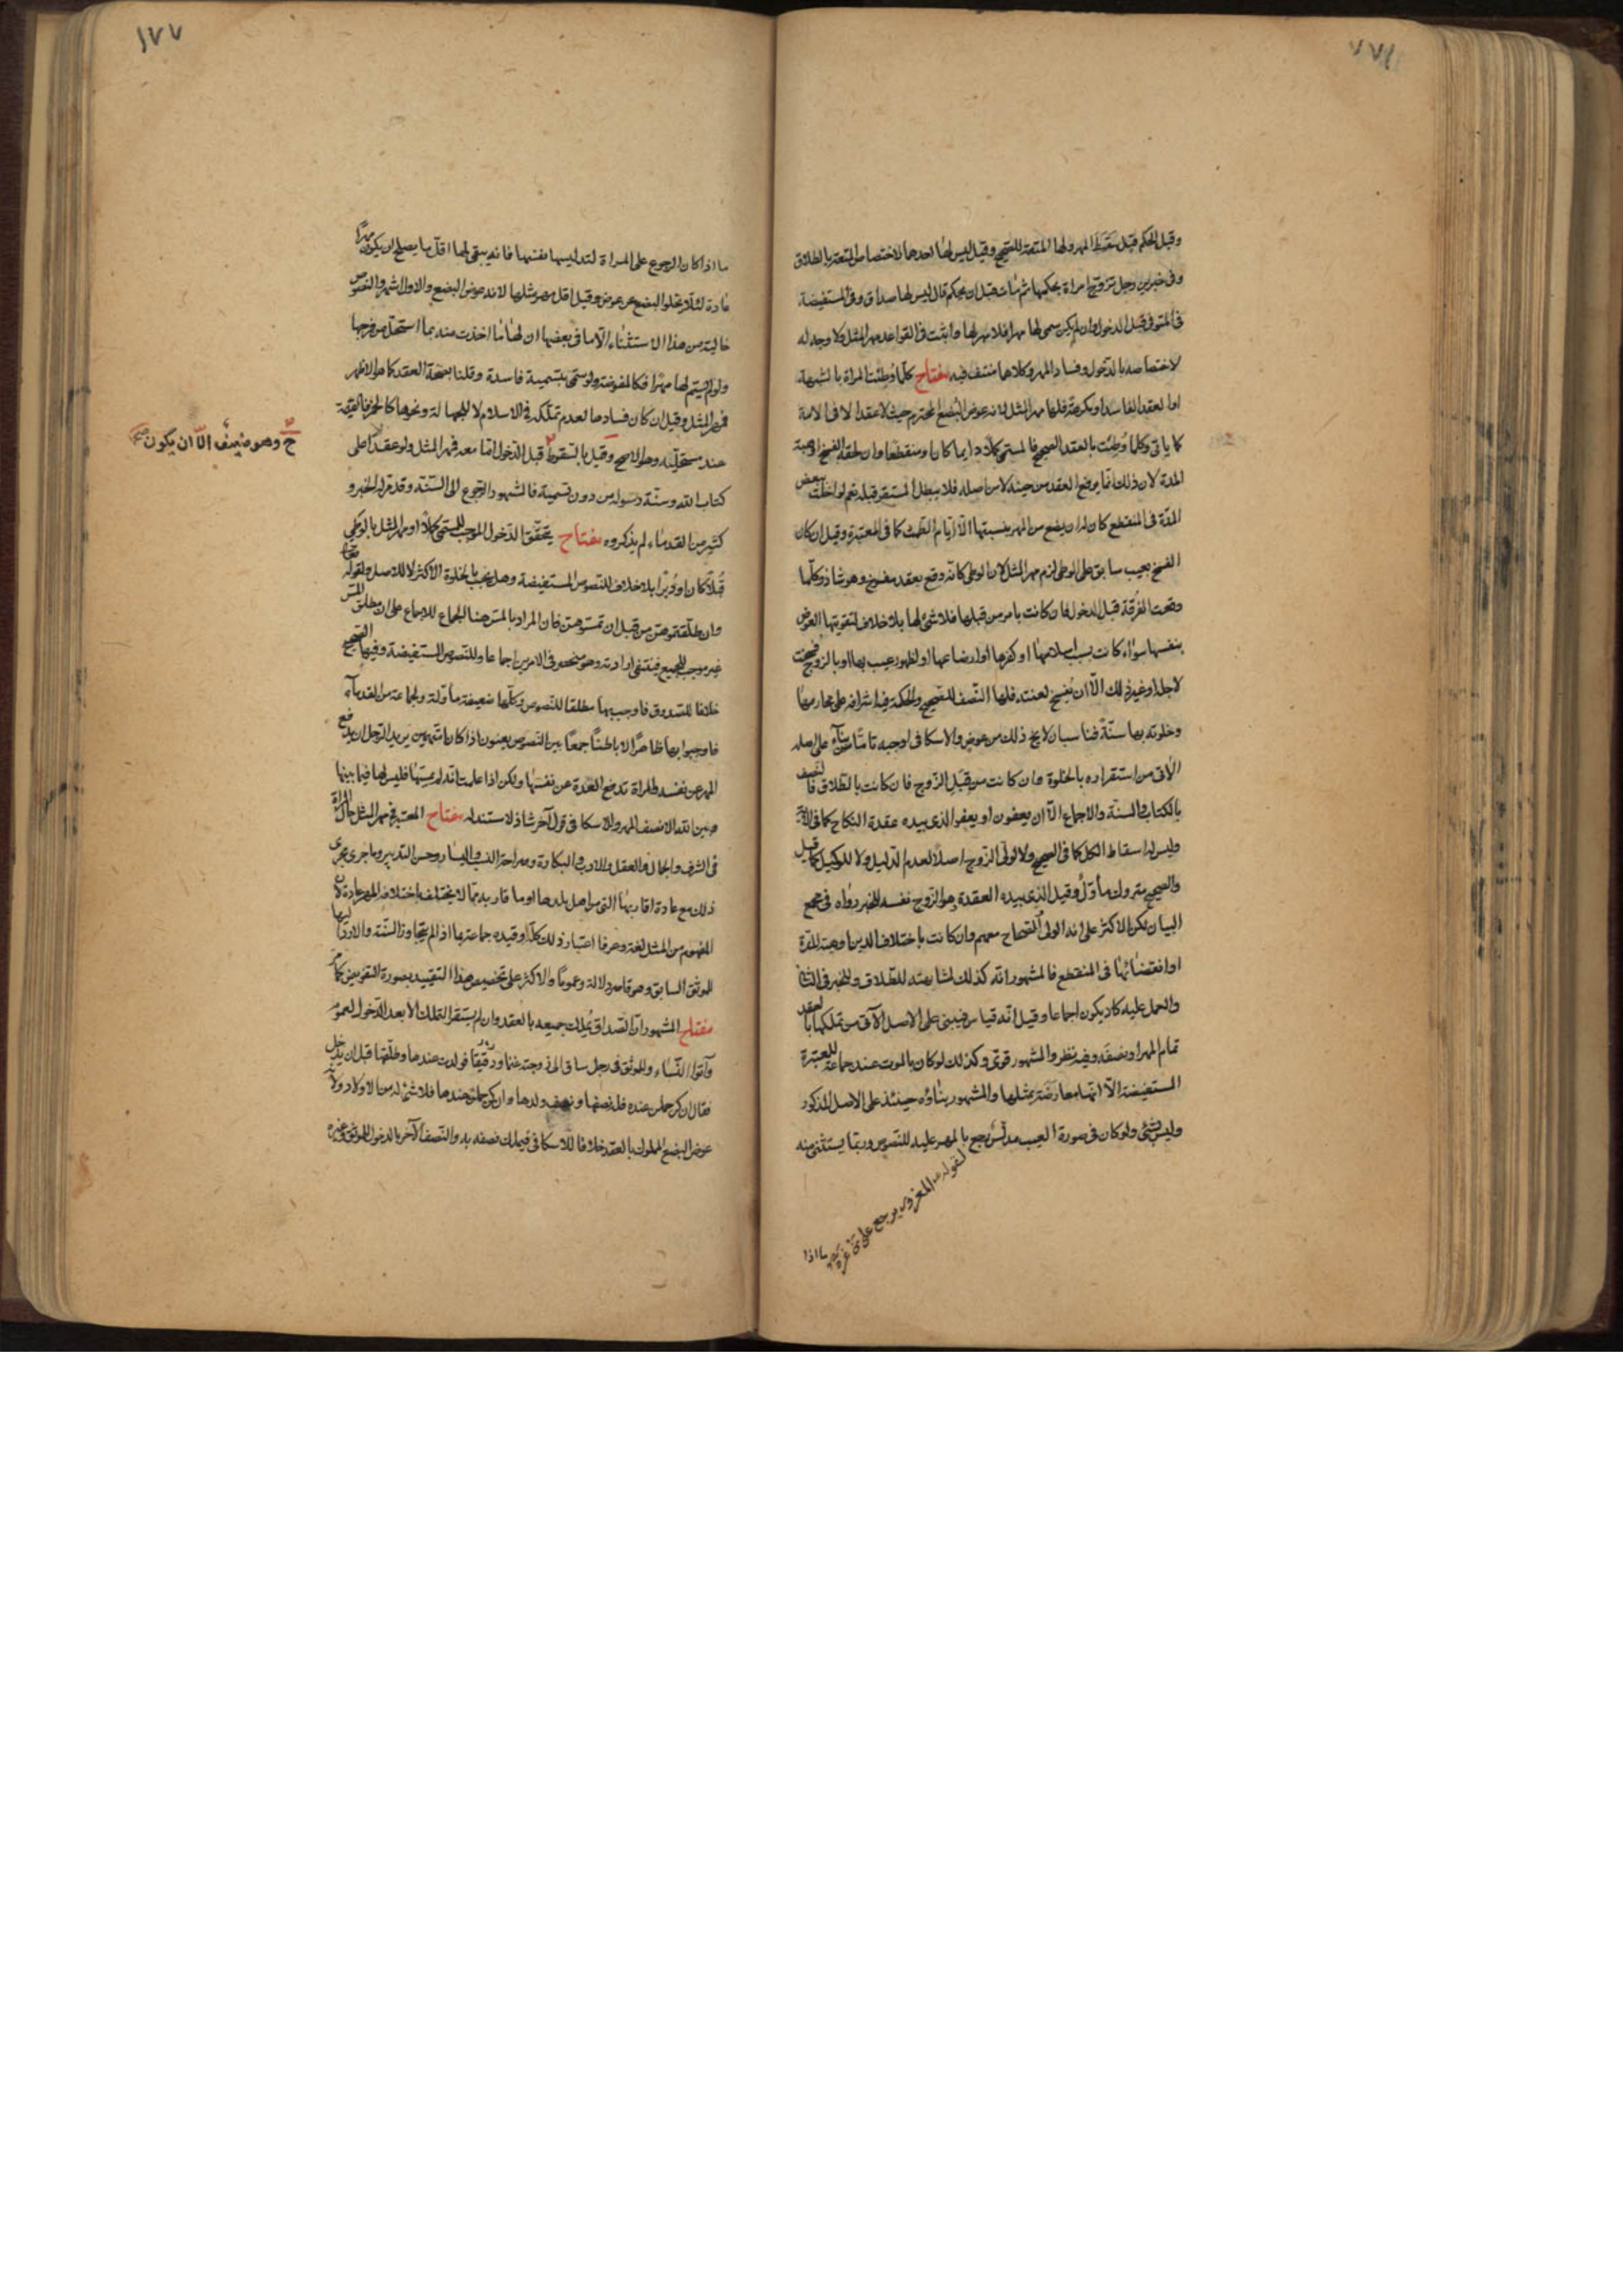 وقبل الحكم قيل سقط المهر ولها المتعة للصحيح وقيل ليس لها احدهما لاختصاص المتعة بالطلاق
وفى خبرين رجل تزوج امراة بحكمها ثم مات قبل ان يحكم قال ليس لها صداق وفى المستفيضة
فى المتوفى قبل الدخول وان لم يكن سمى لها مهرا فلا مهر لها واثبت فى القواعد مهر المثل ولا وجه له
لاختصاصه بالدخول وفساد المهر وكلاهما منتف فيه مفتاح كلما وطئت المراة بالشبهة
او العقد الفاسد او مكرهة فلها مهر المثل لانه عوض البضع المحترم حيث لا عقد الا فى الامة
كما ياتى وكلما وطئت بالعقد الصحيح فالمسمى كلا دايما كان او منقطعا وان لحقه الفسخ او هبة
المدة لان ذلك انما يرفع العقد من حينه لا من اصله فلا يبطل المستقر قبله نعم لو اخلت ببعض
المدة فى المنقطع كان له ان يضع من المهر بنسبتها الا ايام الطمث كما فى المعتبرة وقيل ان كان
الفسخ بعيب سابق على الوطى لزم مهر المثل لان الوطى كانه وقع بعقد مفسوخ وهو شاذ وكلما
وقعت الفرقة قبل الدخول فان كانت بامر من قبلها فلا شئ لها بلا خلاف لتفويتها العوض
بنفسها سواء كانت بسبب اسلامها او كفرها او ارضاعها او لظهور عيب بها او بالزوج فسخت
لاجله او غير ذلك الا ان يفسخ لعننه فلها النصف للصحيح والحكمة فيه اشرافه على محارمها
وخلوته بها سنة فناسب ان لا يخ ذلك من عوض والاسكافى اوجبه تاما بناء على اصله
الاتى من استقراره بالخلوة وان كانت من قبل الزوج فان كانت بالطلاق فالنصف
بالكتاب والسنة والاجماع الا ان يعفون او يعفو الذى بيده عقدة النكاح كما فى الآية
وليس له اسقاط الكل كما فى الصحيح ولا لولى الزوج اصلا لعدم الدليل ولا للوكيل كما قيل
والصحيح متروك مأول وقيل الذى بيده العقدة هو الزوج نفسه لخبر رواه فى مجمع
البيان لكن الاكثر على انه الولى والصحاح معهم وان كانت باختلاف الدين او هبة المدة
او انقضائها فى المنقطع فالمشهور انه كذلك لمشابهته للطلاق وللخبر فى الثانى
والحمل عليه كاد يكون اجماعا وقيل انه قياس فيبنى على الاصل الآتى من تملكها بالعقد
تمام المهر او نصفه وفيه نظر والمشهور قوى وكذلك لو كان بالموت عند جماعة للمعتبرة
المستفيضة الا انها معارضة بمثلها والمشهور بناؤه حينئذ على الاصل المذكور
وليس بشئ ولو كان فى صورة العيب مدلس رجع بالمهر عليه للنصوص وربما يستثنى منه
لقوله المغرور يرجع على من غره
ما اذا
١٧٧
ما اذا كان الرجوع على المراة لتدليسها نفسها فانه يبقى لها اقل ما يصلح ان يكون مهرا
عادة لئلا يخلو البضع عن عوض وقيل اقل مهر مثلها لانه عوض البضع والاول اشهر والنصوص
خالية من هذا الاستثناء الا ما فى بعضها ان لها ما اخذت منه بما استحل من فرجها
ولو لم يسم لها مهرا فكالمفوضة ولو سمى بتسمية فاسدة وقلنا بصحة العقد كما هو الاظهر
فمهر المثل وقيل ان كان فسادها لعدم تملكه فى الاسلام لا للجهالة ونحوها كالخمر فالقيمة
عند مستحليه وهو الاصح وقيل بالسقوط قبل الدخول اما معه فمهر المثل ولو عقدا على
كتاب الله وسنة رسوله من دون تسمية فالمشهور الرجوع الى السنة وقد مر للخبر و
كثير من القدماء لم يذكروه مفتاح يتحقق الدخول الموجب للمسمى كلا او مهر المثل بالوطى
قبلا كان او دبرا بلا خلاف للنصوص المستفيضة وهل يجب بالخلوة الاكثر لا للاصل ولقوله تعالى
وان طلقتموهن من قبل ان تمسوهن فان المراد بالمس هنا الجماع للاجماع على ان مطلق المس
غير موجب للجميع فينتفى ارادته وهو منحصر فى الامرين اجماعا وللنصوص المستفيضة وفيها الصحيح
خلافا للصدوق فاوجبه بها مطلقا للنصوص وكلها ضعيفة مأولة ولجماعة من القدماء
فاوجبوا بها ظاهرا لا باطنا جمعا بين النصوص يعنون اذا كانا متهمين يريد الرجل ان يدفع
المهر عن نفسه والمراة تدفع العدة عن نفسها ولكن اذا علمت انه لم يمسها فليس لها فيما بينها
وبين الله الا نصف المهر وللاسكافى قول آخر شاذ لا سند له مفتاح المعتبر فى مهر المثل حال المراة
فى الشرف والجمال والعقل والادب والبكارة وصراحة النسب واليسار وحسن التدبير وما جرى مجرى
ذلك مع عادة اقاربها التى من اهل بلدها او ما قاربه مما لا يختلف باختلاف المهر عادة لان
المفهوم من المثل لغة وعرفا اعتبار ذلك كله وقيده جماعة بما اذا لم يتجاوز السنة والا رد اليها
للموثق السابق وهو قاصر دلالة وعموما والاكثر على تخصيص هذا التقييد بصورة التفويض كما مر
مفتاح المشهور ان الصداق يملك جميعه بالعقد وان لم يستقر التملك الا بعد الدخول لعموم
وآتوا النساء وللموثق فى رجل ساق الى زوجته غنما ورقيقا فولدت عندها وطلقها قبل ان يدخل
فقال ان كن حملن عنده فله نصفها ونصف ولدها وان كن حملن عندها فلا شئ له من الاولاد ولانه
عوض البضع المملوك بالعقد خلافا للاسكافى فيملك نصفه به والنصف الآخر بالدخول للموثق وغيره
ح وهو ضعيف الا ان يكون صح